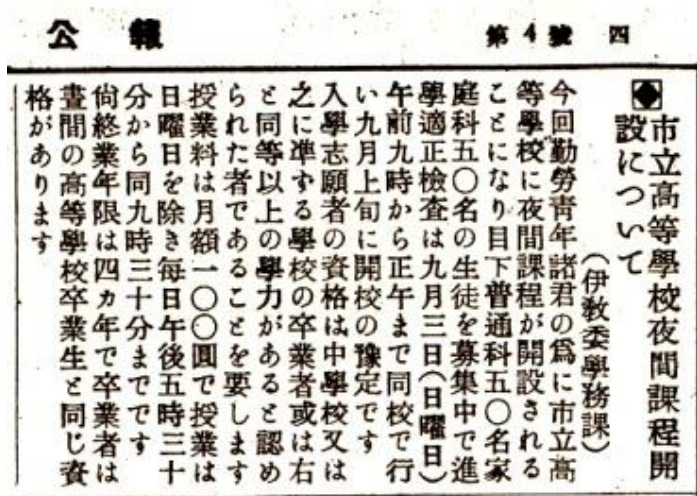 公報
第4號 四
◆市立高等學校夜間課程開
設について
(伊教委學務課)
今回勤勞靑年諸君の爲に市立高
等學校に夜間課程が開設される
ことになり目下普通科五〇名家
庭科五〇名の生徒を募集中で進
學適正檢査は九月三日(日曜日)
午前九時から正午まで同校で行
い九月上旬に開校の豫定です
入學志願者の資格は中學校又は
之に準ずる學校の卒業者或は右
と同等以上の學力があると認め
られた者であることを要します
授業料は月額一〇〇圓で授業は
日曜日を除き每日午後五時三十
分から同九時三十分までです
尙終業年限は四カ年で卒業者は
晝間の高等學校卒業生と同じ資
格があります